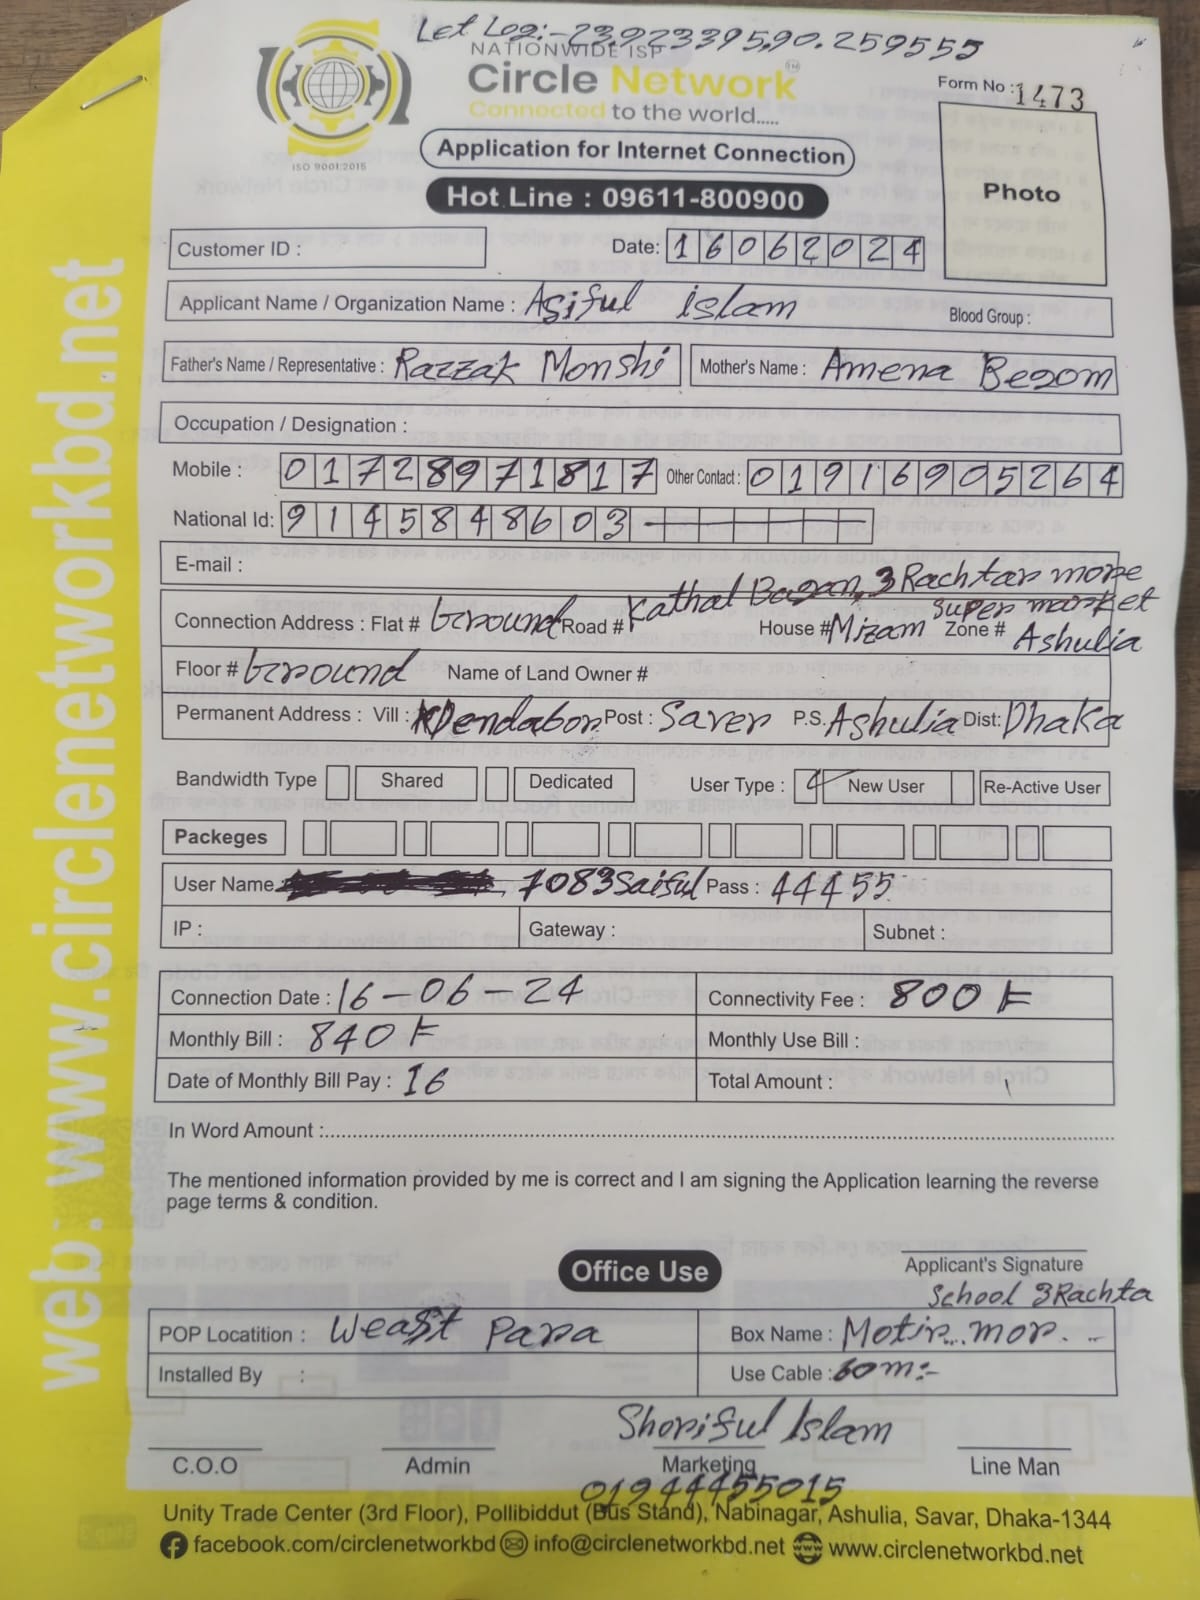 Let Log:-23.923395,90.259555
NATIONWIDE ISP
Circle Network™
Connected to the world.....
ISO 9001:2015
Form No : 1473
Application for Internet Connection
Hot Line : 09611-800900
Photo
Customer ID :
Date: 16062024
Applicant Name / Organization Name : Asiful islam
Blood Group :
Father's Name / Representative : Razzak Monshi
Mother's Name : Amena Begom
Occupation / Designation :
Mobile : 01728971817 Other Contact : 01916905264
National Id: 9145848603-
E-mail :
Kathal Bagan, 3 Rachtar more
super market
Connection Address : Flat # Ground Road # House # Mizam Zone # Ashulia
Floor # Ground Name of Land Owner #
Permanent Address : Vill : Dendabor Post : Saver P.S. Ashulia Dist: Dhaka
Bandwidth Type Shared Dedicated User Type : New User Re-Active User
Packeges
User Name 7083Saiful Pass : 44455
IP : Gateway : Subnet :
Connection Date : 16-06-24 Connectivity Fee : 800 F
Monthly Bill : 840 F Monthly Use Bill :
Date of Monthly Bill Pay : 16 Total Amount :
In Word Amount :
The mentioned information provided by me is correct and I am signing the Application learning the reverse
page terms & condition.
Applicant's Signature
Office Use
School 3Rachta
POP Locatition : Weast Para Box Name : Motir mor.
Installed By : Use Cable : 60m:-
Shoriful Islam
C.O.O Admin Marketing Line Man
01944455015
Unity Trade Center (3rd Floor), Pollibiddut (Bus Stand), Nabinagar, Ashulia, Savar, Dhaka-1344
facebook.com/circlenetworkbd info@circlenetworkbd.net www.circlenetworkbd.net
web: www.circlenetworkbd.net